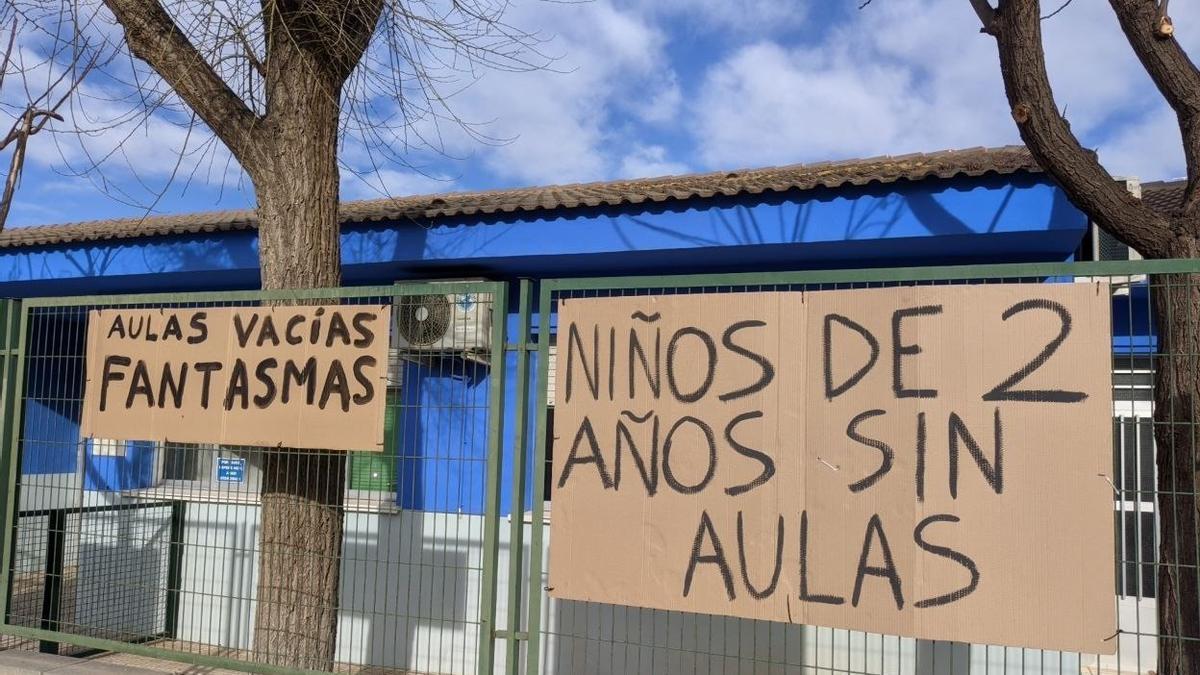 AULAS VACÍAS
FANTASMAS
NIÑOS DE 2
AÑOS SIN
AULAS